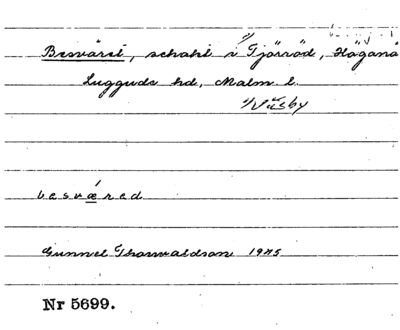 Besväret, schakt i Tjörröd, Höganä
Luggude hd, Malm. l.
1) Väsby
besværed
Gunnel Thorwaldson 1945
Nr 5699.